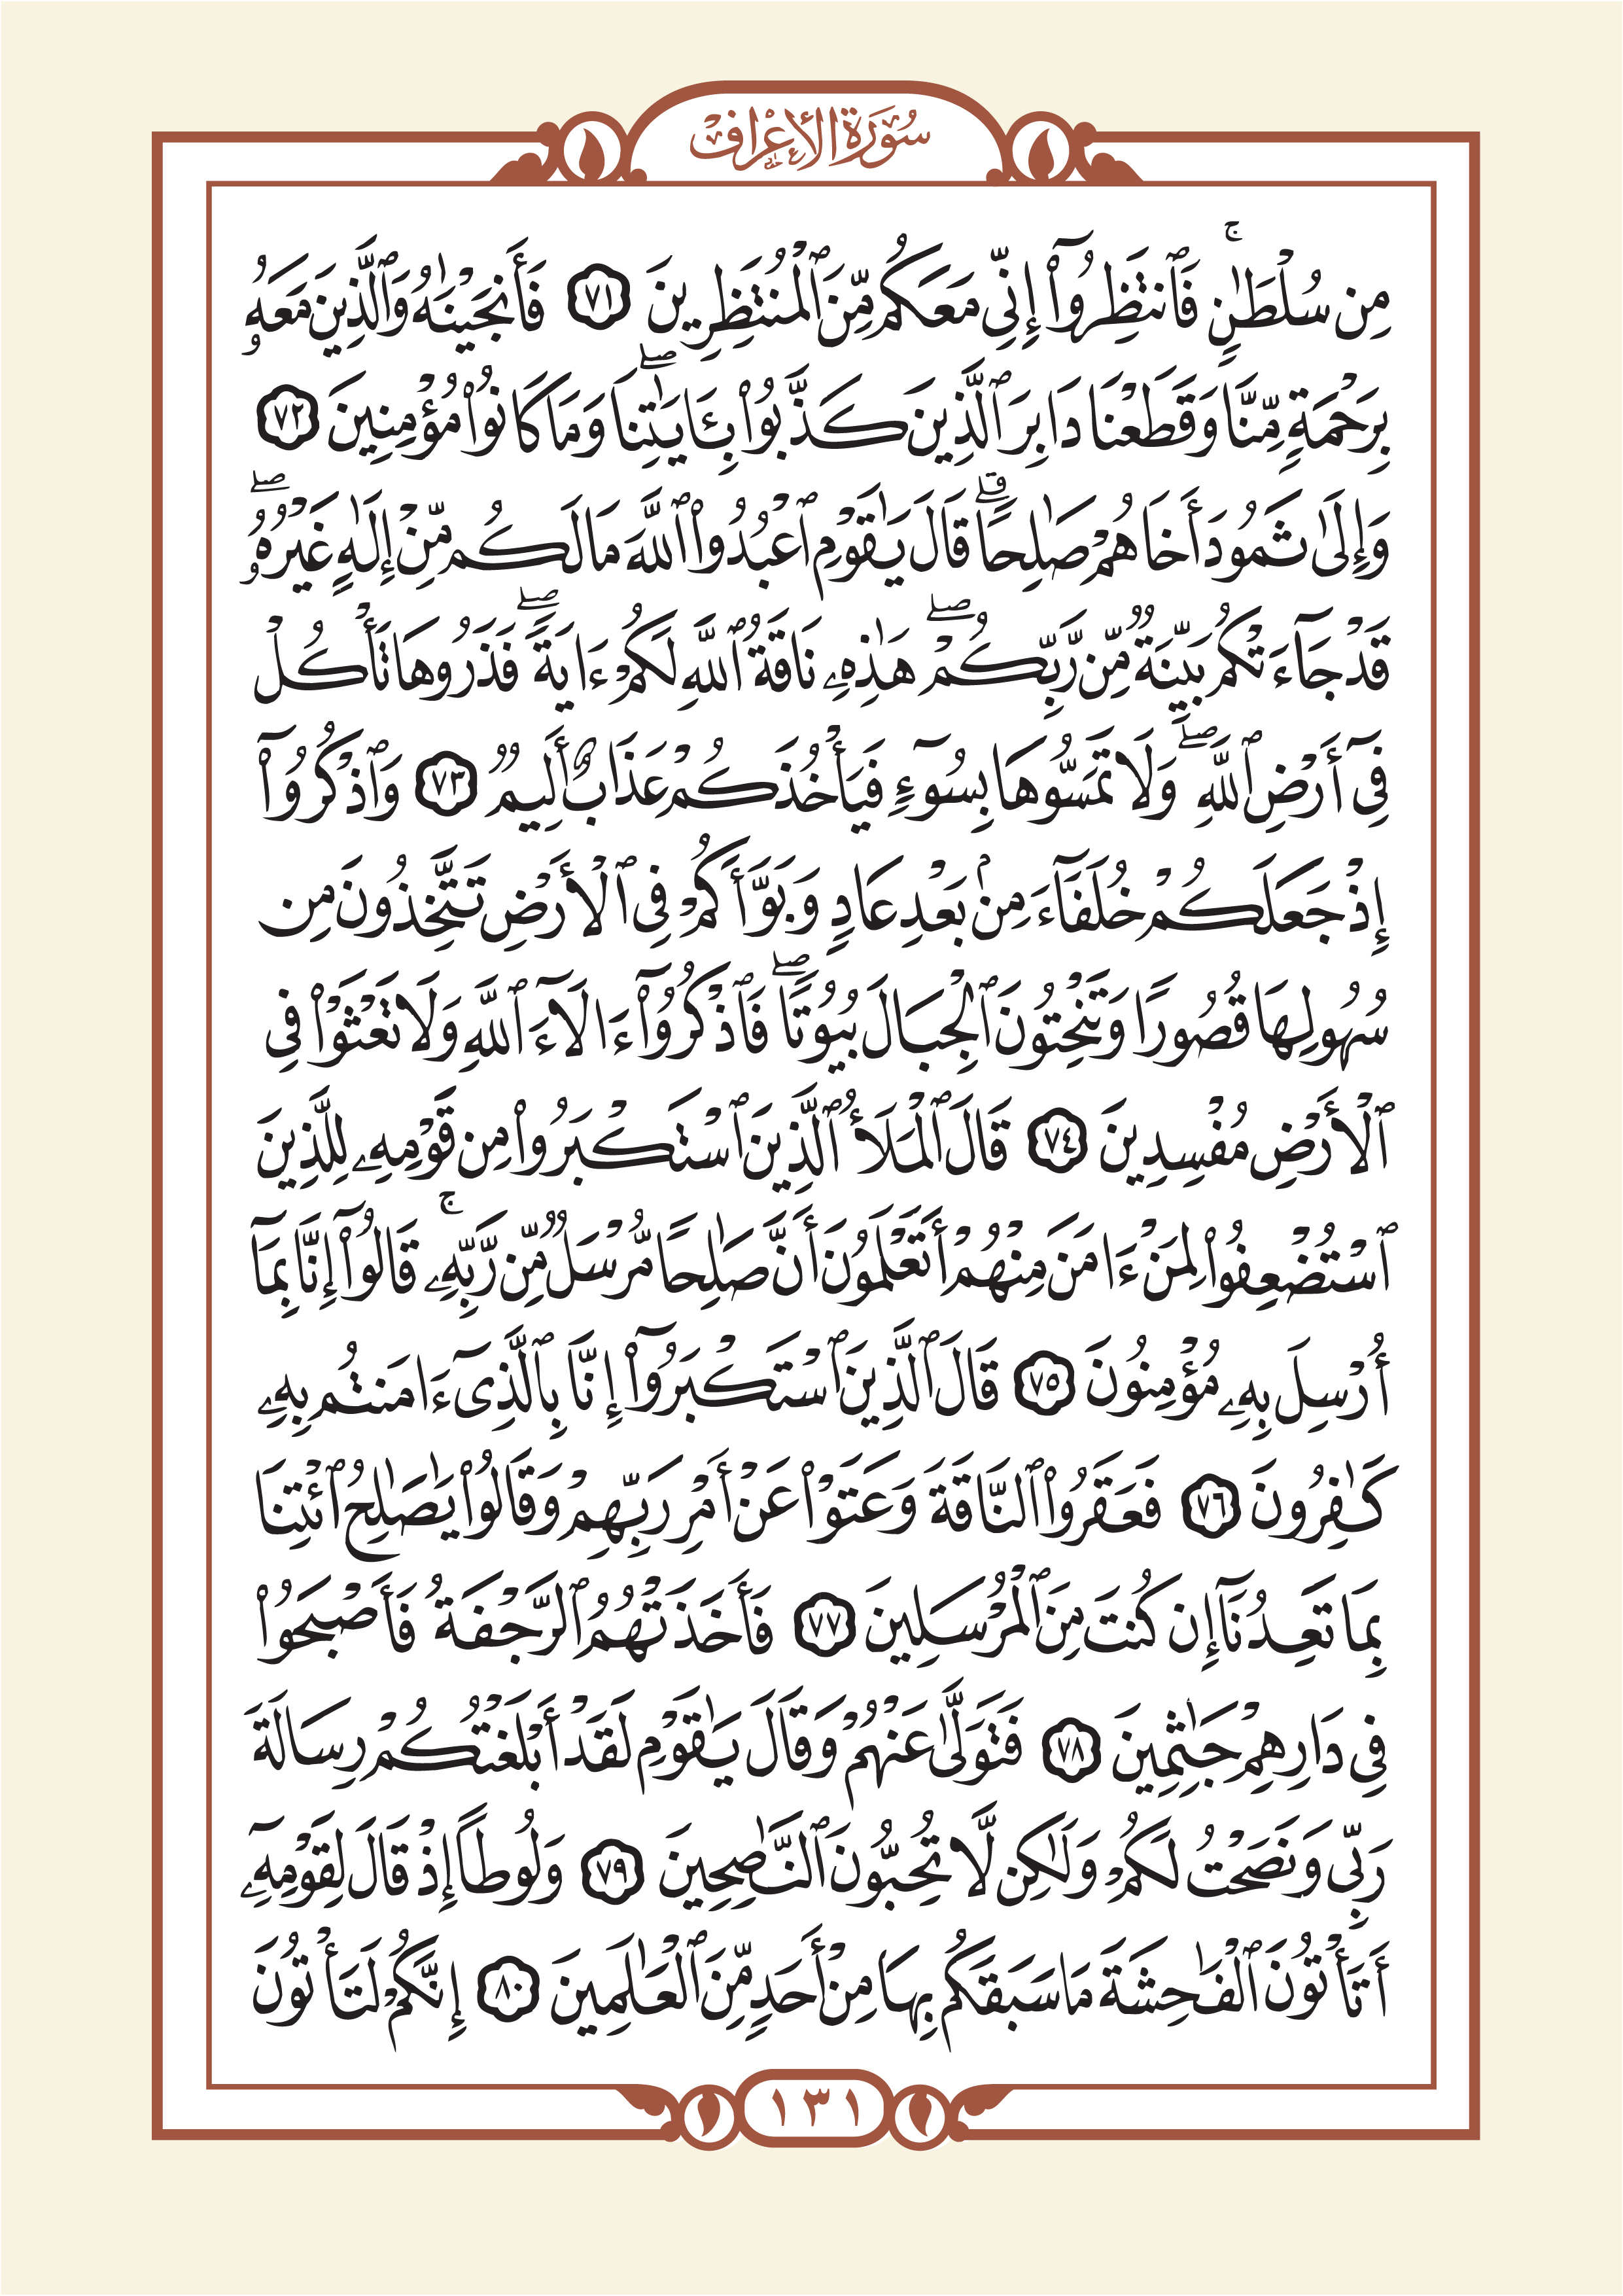 سُورَةُ الأَعْرَافِ
مِن سُلْطَـٰنٍۚ فَٱنتَظِرُوٓاْ إِنِّى مَعَكُم مِّنَ ٱلْمُنتَظِرِينَ ٧١ فَأَنجَيْنَـٰهُ وَٱلَّذِينَ مَعَهُۥ
بِرَحْمَةٍ مِّنَّا وَقَطَعْنَا دَابِرَ ٱلَّذِينَ كَذَّبُواْ بِـَٔايَـٰتِنَاۖ وَمَا كَانُواْ مُؤْمِنِينَ ٧٢
وَإِلَىٰ ثَمُودَ أَخَاهُمْ صَـٰلِحًاۗ قَالَ يَـٰقَوْمِ ٱعْبُدُواْ ٱللَّهَ مَا لَكُم مِّنْ إِلَـٰهٍ غَيْرُهُۥۖ
قَدْ جَآءَتْكُم بَيِّنَةٌ مِّن رَّبِّكُمْۖ هَـٰذِهِۦ نَاقَةُ ٱللَّهِ لَكُمْ ءَايَةًۖ فَذَرُوهَا تَأْكُلْ
فِىٓ أَرْضِ ٱللَّهِۖ وَلَا تَمَسُّوهَا بِسُوٓءٍ فَيَأْخُذَكُمْ عَذَابٌ أَلِيمٌ ٧٣ وَٱذْكُرُوٓاْ
إِذْ جَعَلَكُمْ خُلَفَآءَ مِنۢ بَعْدِ عَادٍ وَبَوَّأَكُمْ فِى ٱلْأَرْضِ تَتَّخِذُونَ مِن
سُهُولِهَا قُصُورًا وَتَنْحِتُونَ ٱلْجِبَالَ بُيُوتًاۖ فَٱذْكُرُوٓاْ ءَالَآءَ ٱللَّهِ وَلَا تَعْثَوْاْ فِى
ٱلْأَرْضِ مُفْسِدِينَ ٧٤ قَالَ ٱلْمَلَأُ ٱلَّذِينَ ٱسْتَكْبَرُواْ مِن قَوْمِهِۦ لِلَّذِينَ
ٱسْتُضْعِفُواْ لِمَنْ ءَامَنَ مِنْهُمْ أَتَعْلَمُونَ أَنَّ صَـٰلِحًا مُّرْسَلٌ مِّن رَّبِّهِۦۚ قَالُوٓاْ إِنَّا بِمَآ
أُرْسِلَ بِهِۦ مُؤْمِنُونَ ٧٥ قَالَ ٱلَّذِينَ ٱسْتَكْبَرُوٓاْ إِنَّا بِٱلَّذِىٓ ءَامَنتُم بِهِۦ
كَـٰفِرُونَ ٧٦ فَعَقَرُواْ ٱلنَّاقَةَ وَعَتَوْاْ عَنْ أَمْرِ رَبِّهِمْ وَقَالُواْ يَـٰصَـٰلِحُ ٱئْتِنَا
بِمَا تَعِدُنَآ إِن كُنتَ مِنَ ٱلْمُرْسَلِينَ ٧٧ فَأَخَذَتْهُمُ ٱلرَّجْفَةُ فَأَصْبَحُواْ
فِى دَارِهِمْ جَـٰثِمِينَ ٧٨ فَتَوَلَّىٰ عَنْهُمْ وَقَالَ يَـٰقَوْمِ لَقَدْ أَبْلَغْتُكُمْ رِسَالَةَ
رَبِّى وَنَصَحْتُ لَكُمْ وَلَـٰكِن لَّا تُحِبُّونَ ٱلنَّـٰصِحِينَ ٧٩ وَلُوطًا إِذْ قَالَ لِقَوْمِهِۦٓ
أَتَأْتُونَ ٱلْفَـٰحِشَةَ مَا سَبَقَكُم بِهَا مِنْ أَحَدٍ مِّنَ ٱلْعَـٰلَمِينَ ٨٠ إِنَّكُمْ لَتَأْتُونَ
١٣١